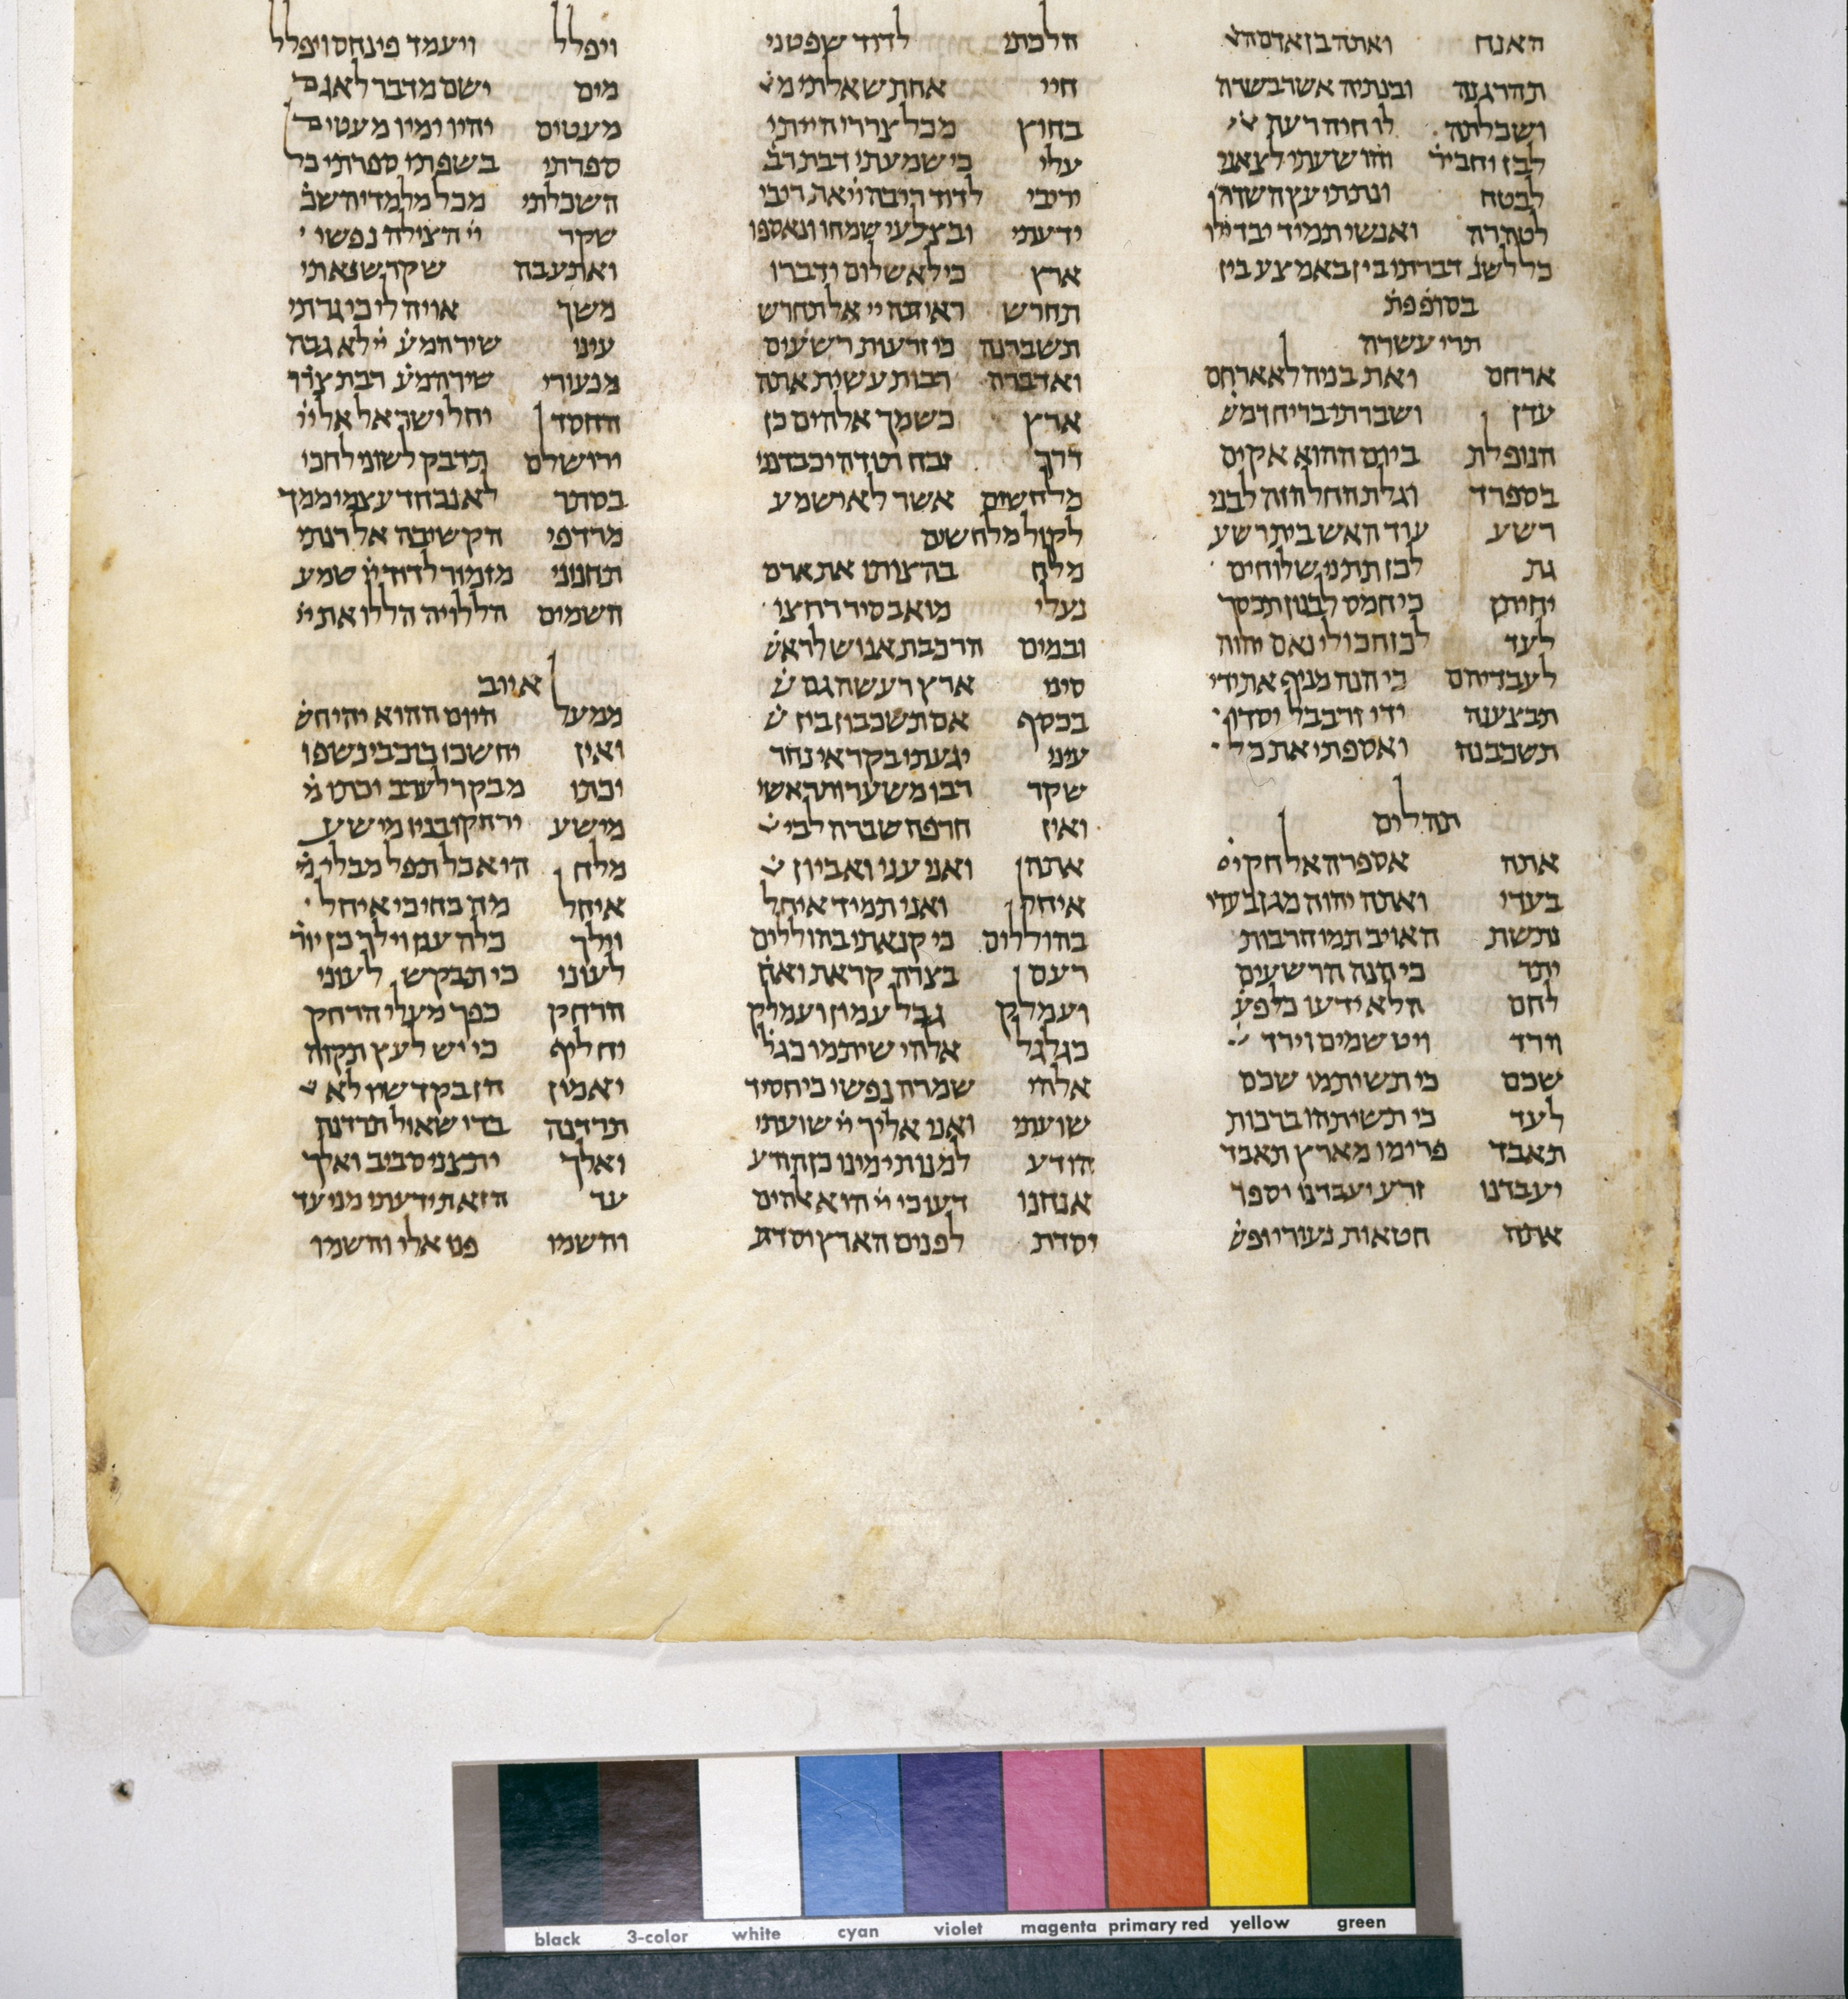 האנח ואתה בן אדם ה
תהרגנה ובנתיה אשר בשדה
ושכלתה לו חיה רעת
לבז והושעתי לצאני
לבטח ונתתי עץ השדה
לטהרה ואנשי תמיד יבדילו
כל לשנ דברתו בין באמצע בין
בסופפת
תרי עשרה
ארחם ואת בניה לא ארחם
עדן ושברתי בריח דמש
הנופלת ביום ההוא אקים
בספרד וגלת החל הזה לבני
רשע עוד האש בית רשע
גת לכן תתני שלוחים
יחיתן כי חמס לבנון יכסך
לעד לכן חכו לי נאם יהוה
לעבדיהם כי הנה מניף את ידי
תבצענה ידי זרבבל יסדו
תשכבנה ואספתי את כל
תהלים
אתה אספרה אל חק יי
בעדי ואתה יהוה מגן בעדי
נתשת האויב תמו חרבות
יתר כי הנה הרשעים
לחם הלא ידעו כל פע
וירד ויט שמים וירד
שכם כי תשיתמו שכם
לעד כי תשיתהו ברכות
תאבד פרימו מארץ תאבד
יעבדנו זרע יעבדנו יספר
אתה חטאות נעורי ופש
הלכתי לדוד שפטני
חיי אחת שאלתי מ
בחוץ מכל צררי הייתי
עלי כי שמעתי דבת רב
יריבי לדוד ריבה יי את ריבי
ידעתי ובצלעי שמחו ונאספו
ארץ כי לא שלום ידברו
תחרש ראיתה יי אל תחרש
תשברנה כי זרעות רשעים
ואדברה רבות עשית אתה
ארץ כשמך אלהים כן
דרך זבח תודה יכבדנני
מלחשים אשר לא ישמע
לקול מלחשים
מלח בהצותו את ארם
נעלי מואב סיר רחצי
ובמים הרכבת אנוש לראש
סיני ארץ רעשה גם ש
בכסף אם תשכבון בין ש
עיני יגעתי בקראי נחר
שקר רבו משערות ראשי
ואין חרפה שברה לבי
אתהן ואני עני ואביון
איחל ואני תמיד איחל
בהוללים כי קנאתי בהוללים
רעם בצרה קראת ואח
ועמלק גבל ועמון ועמלק
כגלגל אלהי שיתמו כגל
אלהי שמרה נפשי כי חסיד
שועתי ואני אליך יי שועתי
הודע למנות ימינו כן הודע
אנחנו דעו כי יי הוא אלהים
יסדת לפנים הארץ יסדת
ויפלל ויעמד פינחס ויפלל
מים ישם מדבר לאגם
מעטים יהיו ימיו מעטים
ספרתי בשפתי ספרתי כל
השכלתי מכל מלמדי השכ
שקר יי הצילה נפשי
ואתעבה שקר שנאתי
משך אויה לי כי גרתי
עיני שיר המע יי לא גבה
מנעורי שיר המע רבת צרר
החסד יחל ישר אל אל יי
ירושלם תדבק לשוני לחכי
בסתר לא נכחד עצמי ממך
מרדפי הקשיבה אל רנתי
תחנוני מזמור לדוד יי שמע
השמים הללויה הללו את יי
איוב
ממעל היום ההוא יהי חש
ואין יחשכו כוכבי נשפו
יכתו מבקר לערב יכתו מ
מישע ירחקו בניו מישע
מלח היאכל תפל מבלי מ
איחל מה כחי כי איחל
וילך כלה ענן וילך כן יור
לעוני כי תבקש לעוני
הרחק כפך מעלי הרחק
יחליף כי יש לעץ תקוה
יאמין הן בקדשיו לא
תרדנה בדי שאול תרדנה
ואלך יתצני סביב ואלך
עד הזאת ידעת מני עד
והשמו פנו אלי והשמו
black 3-color white cyan violet magenta primary red yellow green